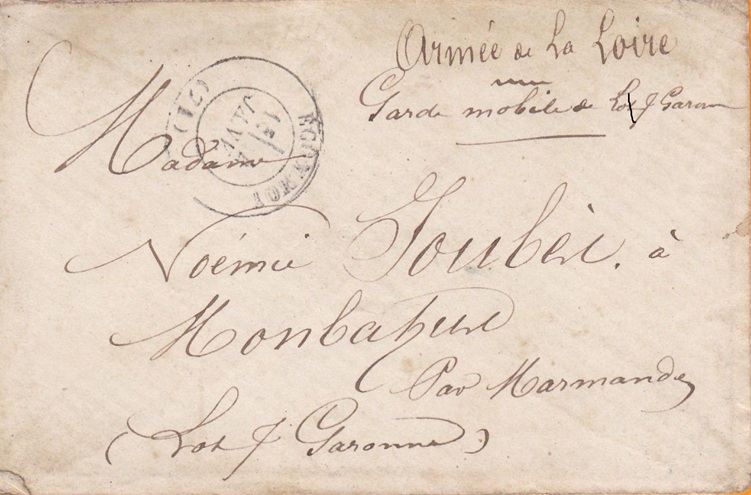 Armée de La Loire
Garde mobile de Lot & Garonne
Madame
Noémie Joubère. à
Monbahus
Par Marmande
(Lot & Garonne)
ECOMMOY
(71)
15
JANV.